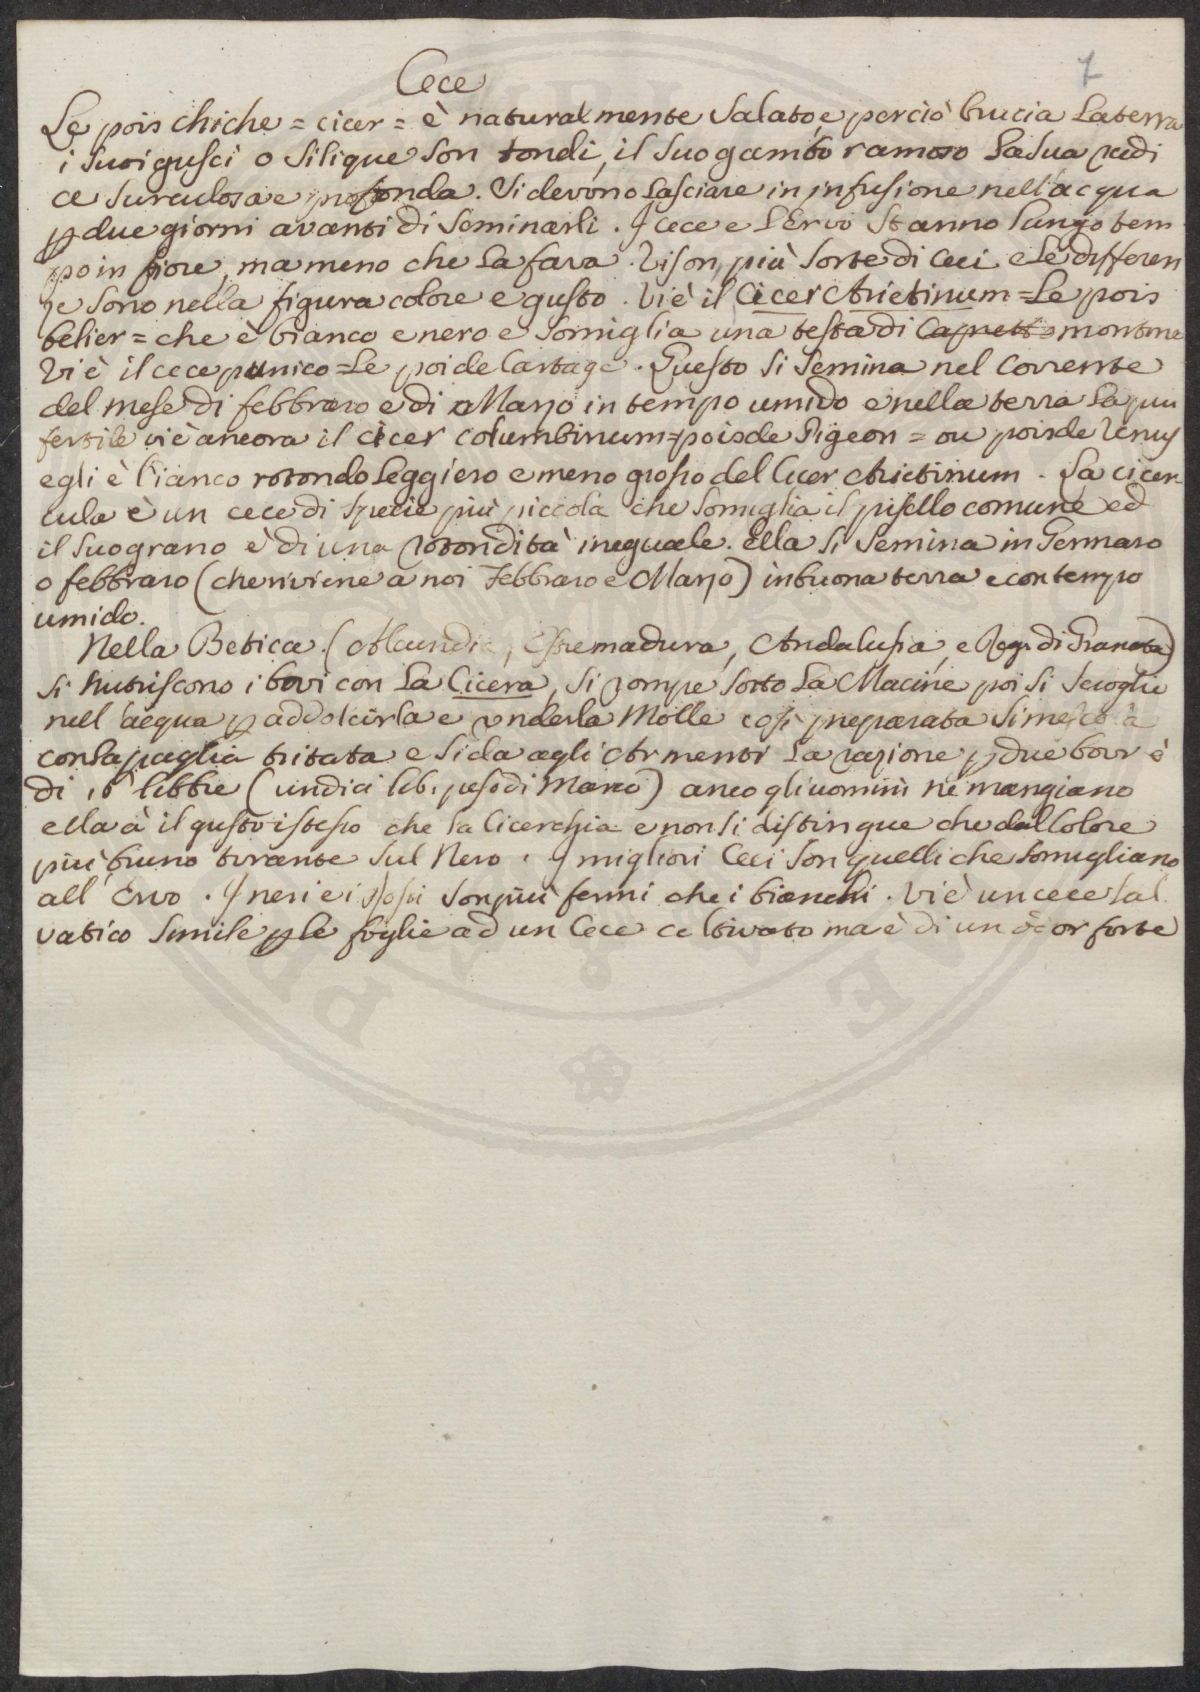 7
Cece
Le pois chiche = cicer = è naturalmente salato, e perciò brucia la terra
i suoi gusci o silique son tondi, il suo gambo ramoso la sua radi
ce surculosa e profonda. Si devono lasciare in infusione nell'acqua
p due giorni avanti di seminarli. I Cece e l'Ervo stanno lungo tem
po in fiore, ma meno che la fava. Vi son più sorte di Ceci e le differen
ze sono nella figura colore e gusto. Vi è il Cicer Arietinum = Le pois
belier = che è bianco e nero e somiglia una testa di montone
Vi è il cece punico = Le poi de Cartage. Questo si semina nel corrente
del mese di febbraro e di Marzo in tempo umido e nella terra la piu
fertile vi è ancora il cicer columbinum = pois de Pigeon = ou pois de Venus
egli è bianco rotondo leggiero e meno grosso del Cicer Arietinum. La cicer
cula è un cece di specie più piccola che somiglia il pisello comune ed
il suo grano è di una rotondità ineguale. ella si semina in Gennaro
o febbraro (che riviene a noi Febbraro e Marzo) in buona terra e con tempo
umido.
Nella Betica (Estremadura, Andalusia, e Reg. di Granata)
si nutriscono i bovi con la Cicera, si rompe sotto la Macine poi si scioglie
nell'acqua p addolcirla e renderla molle così preparata si mescola
con la paglia tritata e si da agli Armenti la razione p due bovi è
di 16 libbre (undici lib. peso di Marco) anco gli uomini ne mangiano
ella à il gusto istesso che la Cicerchia e non si distingue che dal Colore
più bruno tirante sul nero. I migliori Ceci son quelli che somigliano
all'Ervo. I neri e i rossi son più fermi che i bianchi. Vi è un cece sal
vatico simile p le foglie ad un Cece coltivato ma è di un odor forte